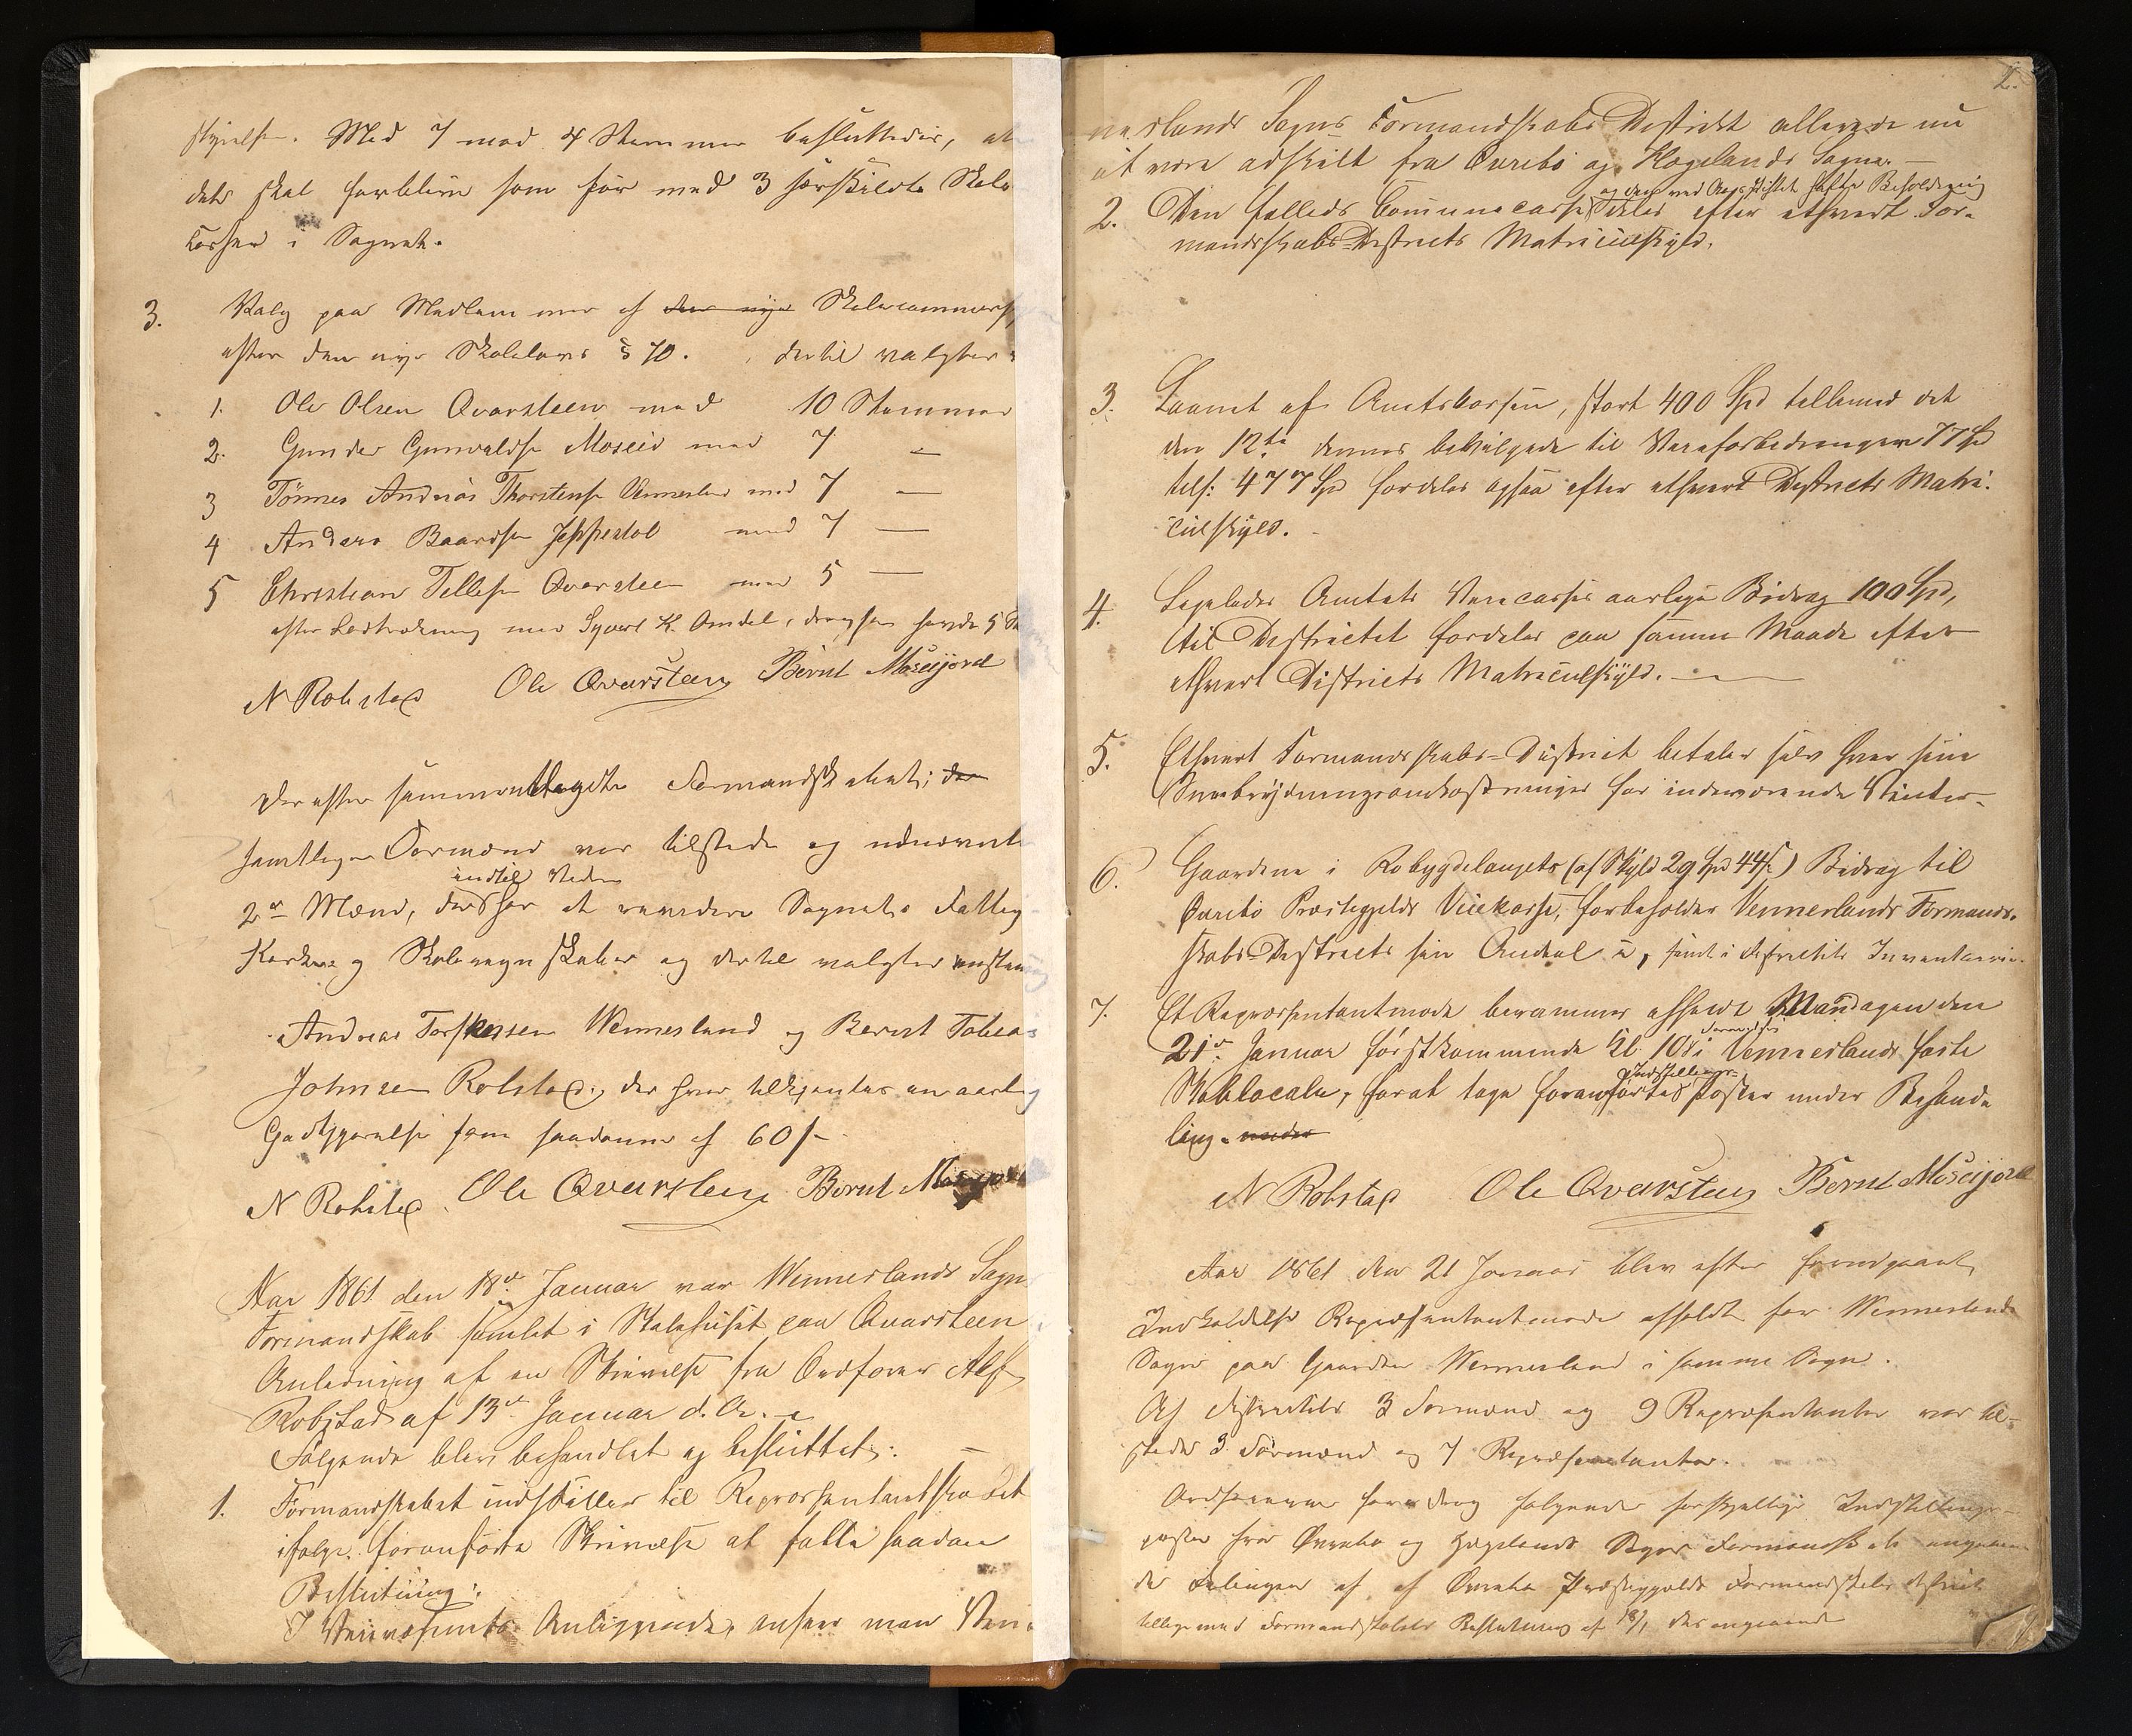 styrelse. Med 7 mod 4 Stemmer besluttedes, at
det skal forblive som før med 3 særskildte Skole
Casser i Sognet.
3. Valg paa Medlemmer af den nye Skolecommission
efter den nye Skolelovs § 70. dertil valgtes
1. Ole Olsen Qvarsteen med 10 Stemmer
2. Gunder Gunvaldsen Moseid med 7 —
3 Tönnes Andreas Thorstensen Vennesland med 7 —
4 Anders Baardsen Jeppestøl med 7 —
5 Christian Tellefsen Qvarsteen med 5 —
efter Lodtrækning med Syvert K. Omdal, der ogsaa havde 5
N Robstad Ole Qvarsteen Bernt Moseijord
Derefter sammentraadte Formandskabet; der
samtlige Formænd var tilstede og udnævnte
indtil videre
2de Mænd, der har at revidere Sognets Fattig
Kirke og Skoleregnskaber og dertil valgtes
Andreas Torkelssen Wennesland og Bernt Tobias
Johnsen Robstad, der hver tilkjentes en aarlig
Godtgjørelse som saadanne af 60 s
N Robstad. Ole Qvarsteen Bernt
Aar 1861 den 18de Januar var Wenneslands Sogns
Formandskab samlet i Skolehuset paa Qvarsteen i
Anledning af en Skrivelse fra Ordfører Alf
Robstad af 13de Januar d. A.
Følgende blev behandlet og besluttet: —
1. Formandskabet indstiller til Repræsentantskabet
ifølge foranførte Skrivelse at fatte saadan
Beslutning:
I Veivæsenets Anliggende, anseer man Ven-
2.
neslands Sogns Formandskabs District allerede nu
at være adskilt fra Øvrebø og Hægelands Sogne. —
og den med Beholdning
2. Den fælleds Communecasse deles efter ethvert For-
mandskabs-Districts Matriculskyld.
3. Laanet af Amtskassen, stort 400 Spd tillemed det
den 12te dennes bevilgede til Veiforbedringer 77 Spd
tils: 477 Spd fordeles ogsaa efter ethvert Districts Matri-
culskyld.
4. Ligeledes Amtets Veicasses aarlige Bidrag 100 Spd,
til Districtet fordeles paa samme Maade efter
ethvert Districts Matriculskyld. —
5. Ethvert Formandskabs-District betaler selv hver sine
Sneebrydningsomkostninger for indeværende Vinter.
6. Gaardene i Robygdelaugets (af Skyld 29 Spd 44 s) Bidrag til
Øvrebø Præstegjelds Veikasse, forbeholder Venneslands Formand-
skabs-District sin Andeel i, samt i Districtets Inventarie.
7. Et Repræsentantmøde berammes afholdt Mandagen den
Formiddag
21de Januar førstkommende Kl. 10 i Venneslands faste
Indstillings
Skolelocale, forat tage foranførte Poster under Behand
ling. under
N Robstad Ole Qvarsteen Bernt Moseijord
Aar 1861 den 21 Januar blev efter foregaaende
Indkaldelse Repræsentantmøde afholdt for Wenneslands
Sogn paa Gaarden Wennesland i samme Sogn.
Af Districtets 3 Formænd og 9 Repræsentanter var til-
stede 3 Formænd og 7 Repræsentanter.
Ordføreren foredrog følgende forskjellige Indstillings-
poster fra Øvrebø og Hægelands Sogns Formandskab angaaende
de Delingen af af Øvrebø Præstegjelds Formandskabs district
tilligemed Formandskabets Beslutning af 18/1 des angaaende